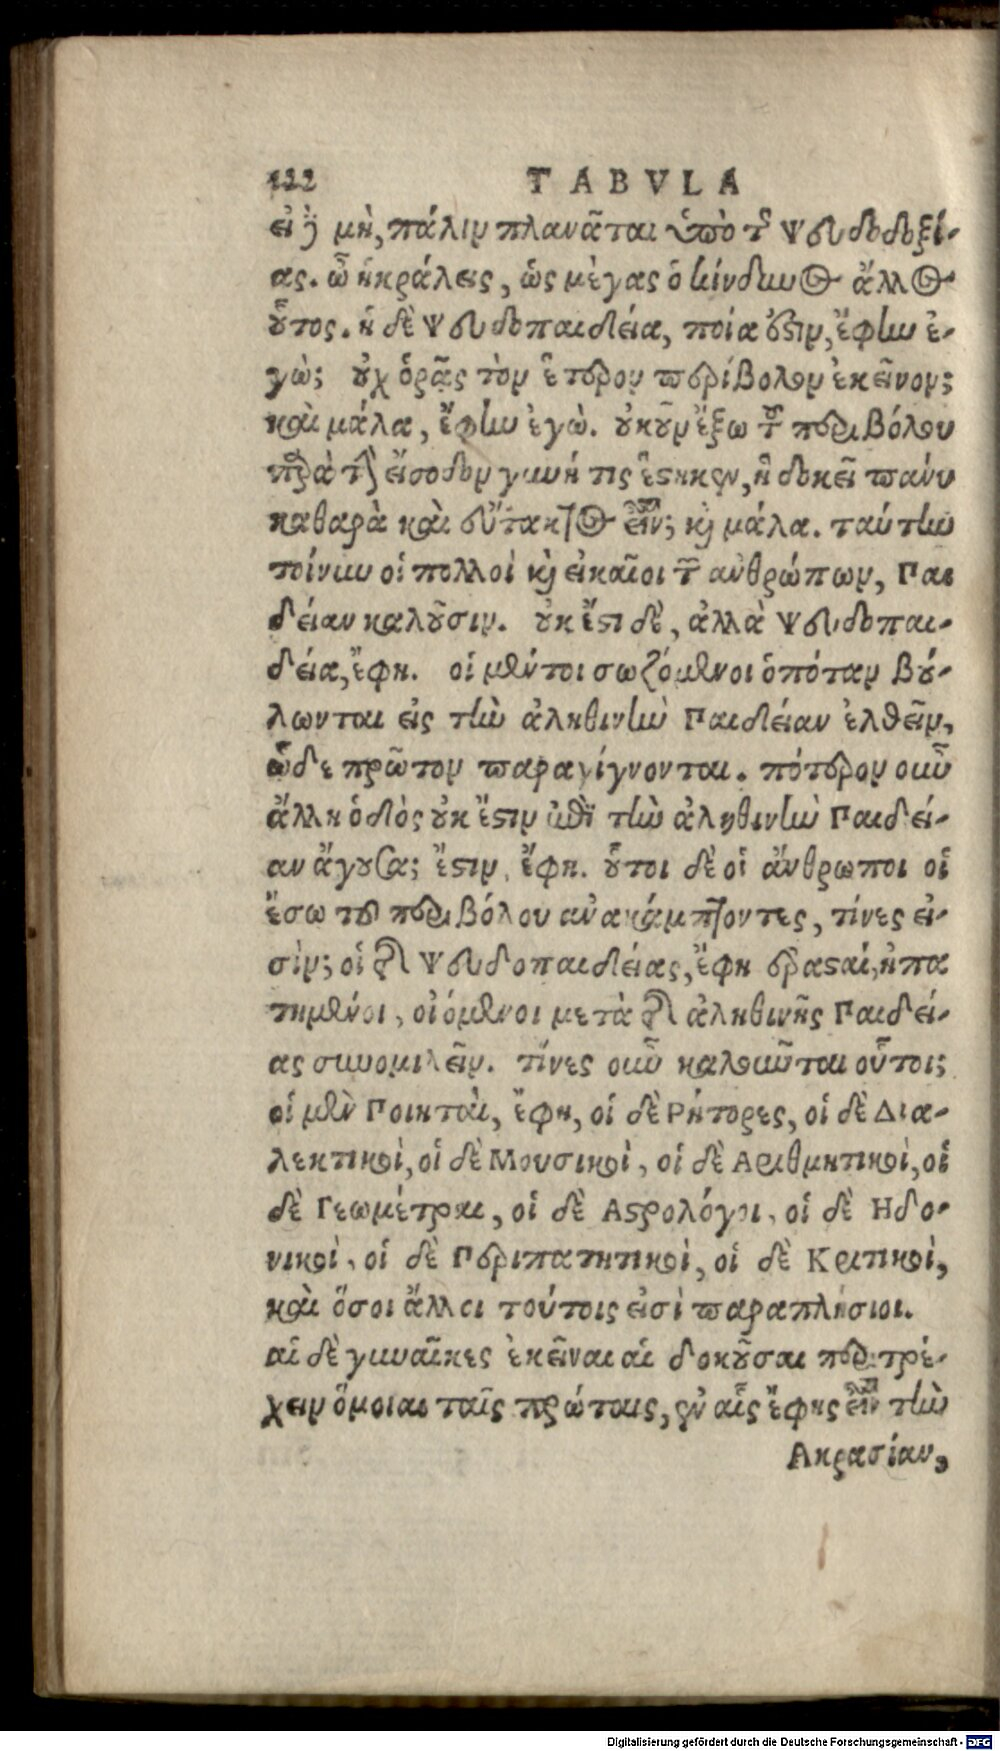 122 TABVLA
εἰ δὲ μὴ, πάλιν πλανᾶται ὑπὸ τῆς Ψευδοδοξί-
ας. ὦ ἡράκλεις, ὡς μέγας ὁ κίνδυνος ἄλλος
οὗτος. ἡ δὲ Ψευδοπαιδεία, ποία ἐστιν, ἔφην ἐ-
γώ; οὐχ ὁρᾷς τὸν ἕτερον περίβολον ἐκεῖνον;
καὶ μάλα, ἔφην ἐγὼ. οὐκοῦν ἔξω τοῦ περιβόλου
παρὰ τὴν εἴσοδον γυνή τις ἕστηκεν, ἣ δοκεῖ πάνυ
καθαρὰ καὶ εὔτακτος εἶναι; καὶ μάλα. ταύτην
τοίνυν οἱ πολλοὶ καὶ εἰκαῖοι τῶν ἀνθρώπων, Παι
δείαν καλοῦσιν. οὐκ ἔστι δὲ, ἀλλὰ Ψευδοπαι-
δεία, ἔφη. οἱ μέντοι σωζόμενοι ὁπόταν βού-
λωνται εἰς τὴν ἀληθινὴν Παιδείαν ἐλθεῖν,
ὧδε πρῶτον παραγίγνονται. πότερον οὖν
ἄλλη ὁδὸς οὐκ ἔστιν ἐπὶ τὴν ἀληθινὴν Παιδεί-
αν ἄγουσα; ἔστιν, ἔφη. οὗτοι δὲ οἱ ἄνθρωποι οἱ
ἔσω τοῦ περιβόλου ἀνακάμπτοντες, τίνες εἰ-
σίν; οἱ τῆς Ψευδοπαιδείας, ἔφη ἐρασταί, ἠπα
τημένοι, οἰόμενοι μετὰ τῆς ἀληθινῆς Παιδεί-
ας συνομιλεῖν. τίνες οὖν καλοῦνται οὗτοι;
οἱ μὲν Ποιηταὶ, ἔφη, οἱ δὲ Ρήτορες, οἱ δὲ Δια-
λεκτικοὶ, οἱ δὲ Μουσικοὶ, οἱ δὲ Αριθμητικοὶ, οἱ
δὲ Γεωμέτραι, οἱ δὲ Αστρολόγοι, οἱ δὲ Ηδο-
νικοὶ, οἱ δὲ Περιπατητικοὶ, οἱ δὲ Κριτικοὶ,
καὶ ὅσοι ἄλλοι τούτοις εἰσὶ παραπλήσιοι.
αἱ δὲ γυναῖκες ἐκεῖναι αἱ δοκοῦσαι περιτρέ-
χειν ὅμοιαι ταῖς πρώταις, ἐν αἷς ἔφης εἶναι τὴν
Ακρασίαν,
Digitalisierung gefördert durch die Deutsche Forschungsgemeinschaft - DFG